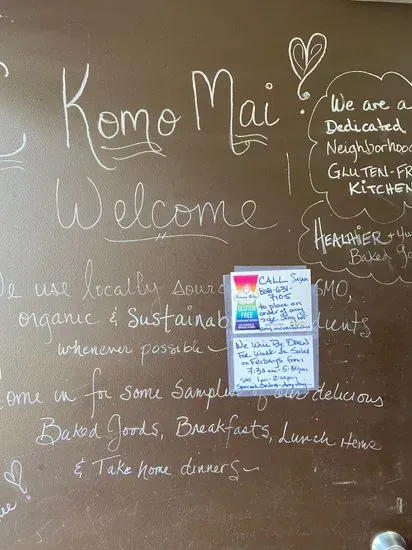 Komo Mai
Welcome
We are a
Dedicated
Neighborhood
GLUTEN-FR
KITCHEN
HEALTHIER +
Baked Go
We use locally sour GMO,
organic & Sustainab dients
whenever possible
Come in for some Samples of our delicious
Baked Goods, Breakfasts, Lunch items
& Take home dinners
CALL Susan
808-631-
7105
to place an
order of any
GLUTEN
FREE
We Will Be Open
For Walk-in Sales
on Fridays from
7:30 am - 5:30pm
SAT 1pm - 2:00pm